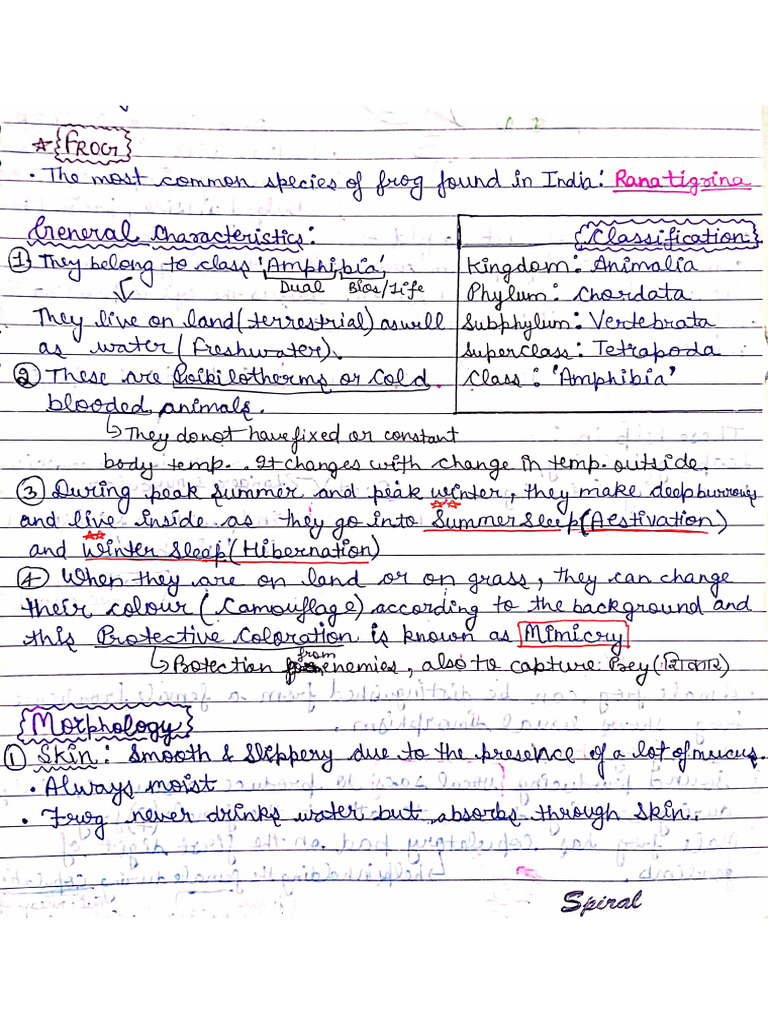 ☆ {FROG}
· The most common species of frog found in India: Rana tigrina
General Characteristics:
① They belong to class 'Amphibia'
Dual Bios/Life
They live on land (terrestrial) as well
as water (freshwater).
② These are Poikilotherms or Cold
blooded animals.
Classification:
Kingdom: Animalia
Phylum: Chordata
Subphylum: Vertebrata
Superclass: Tetrapoda
Class: 'Amphibia'
↳ They do not have fixed or constant
body temp. . It changes with change in temp. outside.
③ During peak summer and peak winter, they make deep burrows
and live inside as they go into Summer sleep (Aestivation)
and Winter Sleep (Hibernation)
④ When they are on land or on grass, they can change
their colour (Camouflage) according to the background and
this Protective Coloration is known as Mimicry
↳ Protection from enemies, also to capture Prey (शिकार)
Morphology
① Skin: Smooth & Slippery due to the presence of a lot of mucus.
· Always moist
· Frog never drinks water but absorbs through skin.
Spiral